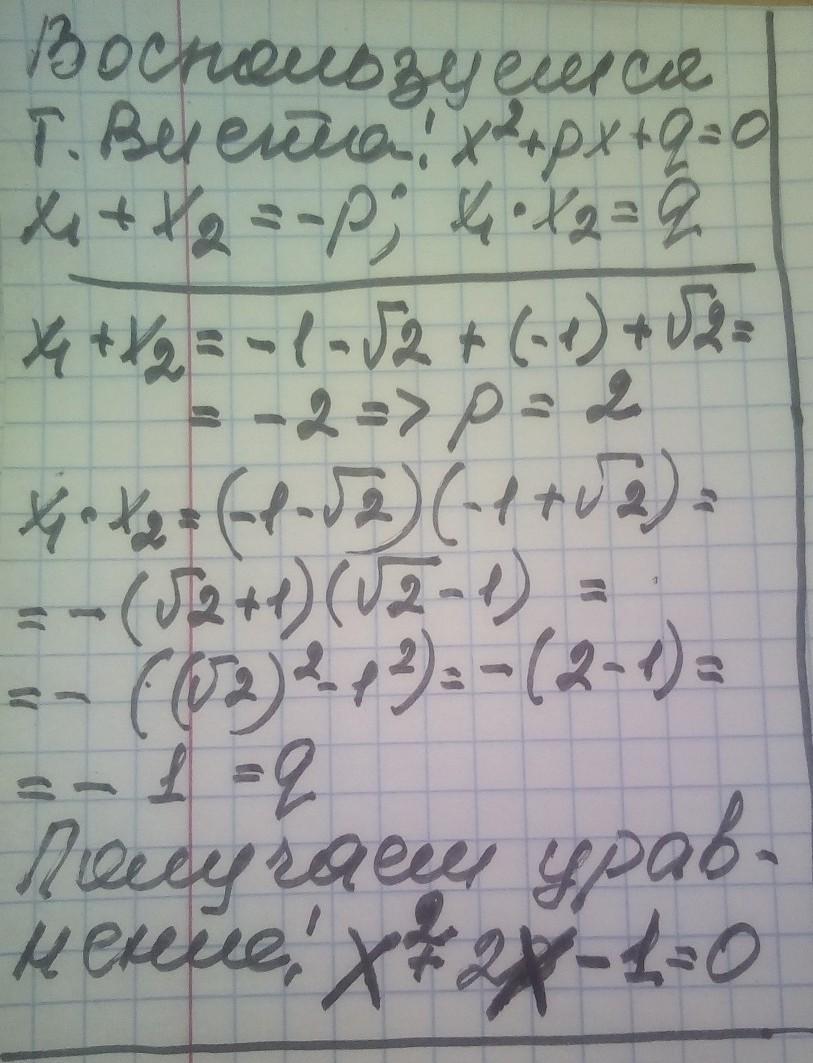 Воспользуемся
Т. Виета: x²+px+q=0
x₁+x₂=-p; x₁·x₂=q
x₁+x₂=-1-√2+(-1)+√2=
=-2=>p=2
x₁·x₂=(-1-√2)(-1+√2)=
=-(√2+1)(√2-1)=
=-((√2)²-1²)=-(2-1)=
=-1=q
Получаем урав-
нение: x²+2x-1=0